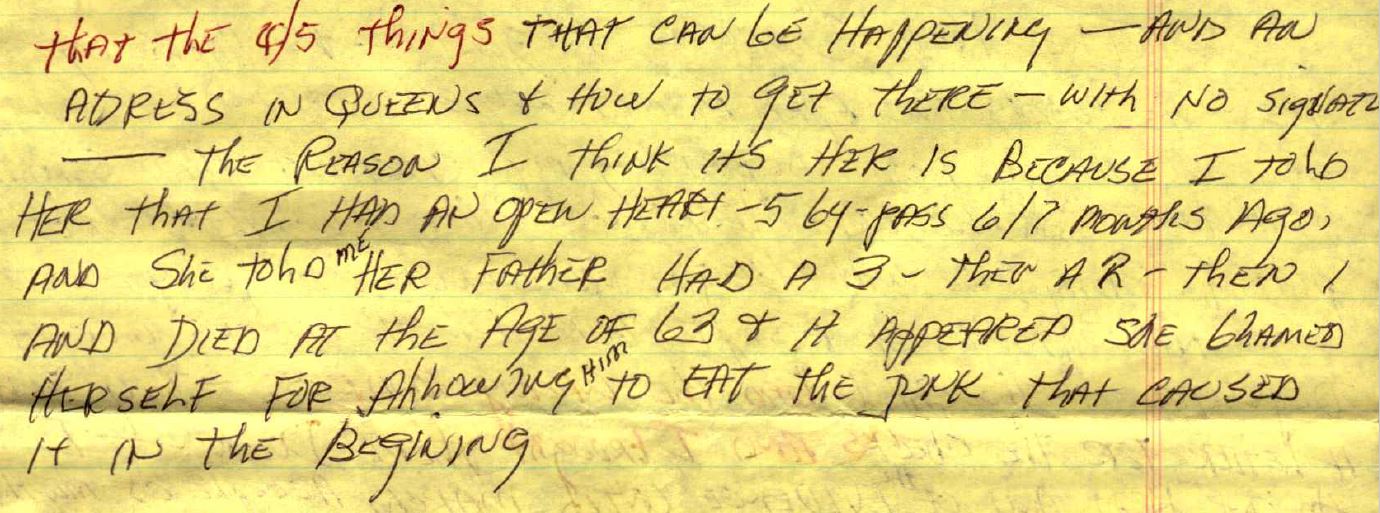 that the 4/5 things THAT CAN bE HAPPENING — AND AN
ADRESS IN QUEENS & HOW TO GET thERE — with NO SigNAT
— thE REASON I think it'S HER IS BECAUSE I told
HER that I HAD AN OPEN HEART - 5 by-pass 6/7 MONthS AGO,
AND ShE told ME HER FAthER HAD A 3 - thEN A 2 - thEN 1
AND DIED At thE AGE OF 63 & It APPEARED ShE blAMED
HERSELF FOR AllowING HIM to EAT thE JUNK that CAUSED
It IN thE BEGINING